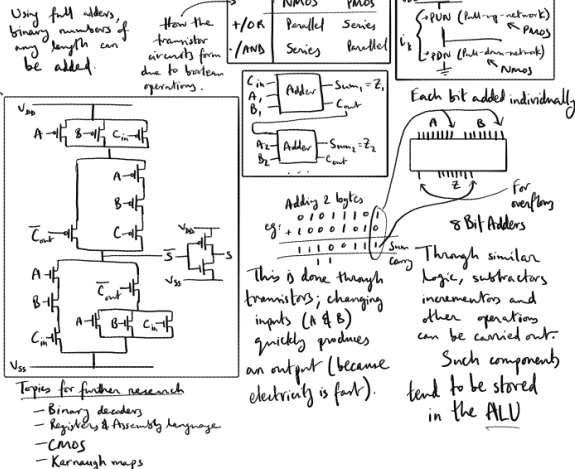 Using full adders,
binary numbers of
any length can
be added.
How the
transistor
circuits form
due to boolean
operations.
NMOS PMOS
+/OR Parallel Series
·/AND Series Parallel
PUN (Pull-up-network)
PMOS
PDN (Pull-down-network)
NMOS
Cin
A₁
B₁
Adder
Sum₁ = Z₁
Cout
A₂
B₂
Adder
Sum₂ = Z₂
Cout
Each bit added individually
A B
Z
For
overflow
8 Bit Adders
VDD
A B Cin
A
B
C
Cout
S
VDD
S
VSS
A
B
Cin
Cout
A B Cin
VSS
Adding 2 bytes
eg:
0 1 0 1 1 1 0 1
+ 1 0 0 0 1 0 1
Sum
carry
1 1
This is done through
transistors; changing
inputs (A & B)
quickly produces
an output (because
electricity is fast).
Through similar
logic, subtractors
incrementors and
other operations
can be carried out.
Such components
tend to be stored
in the ALU
Topics for further research
- Binary decoders
- Registers & Assembly language
- CMOS
- Karnaugh maps